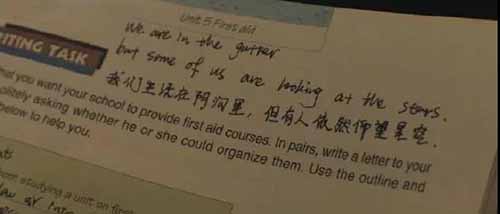 Unit 5 First aid
We are in the gutter
but some of us are looking at the stars.
我们生活在阴沟里，但有人依然仰望星空.
RITING TASK
hat you want your school to provide first aid courses. In pairs, write a letter to your
olitely asking whether he or she could organize them. Use the outline and
below to help you.
from studying a unit on first